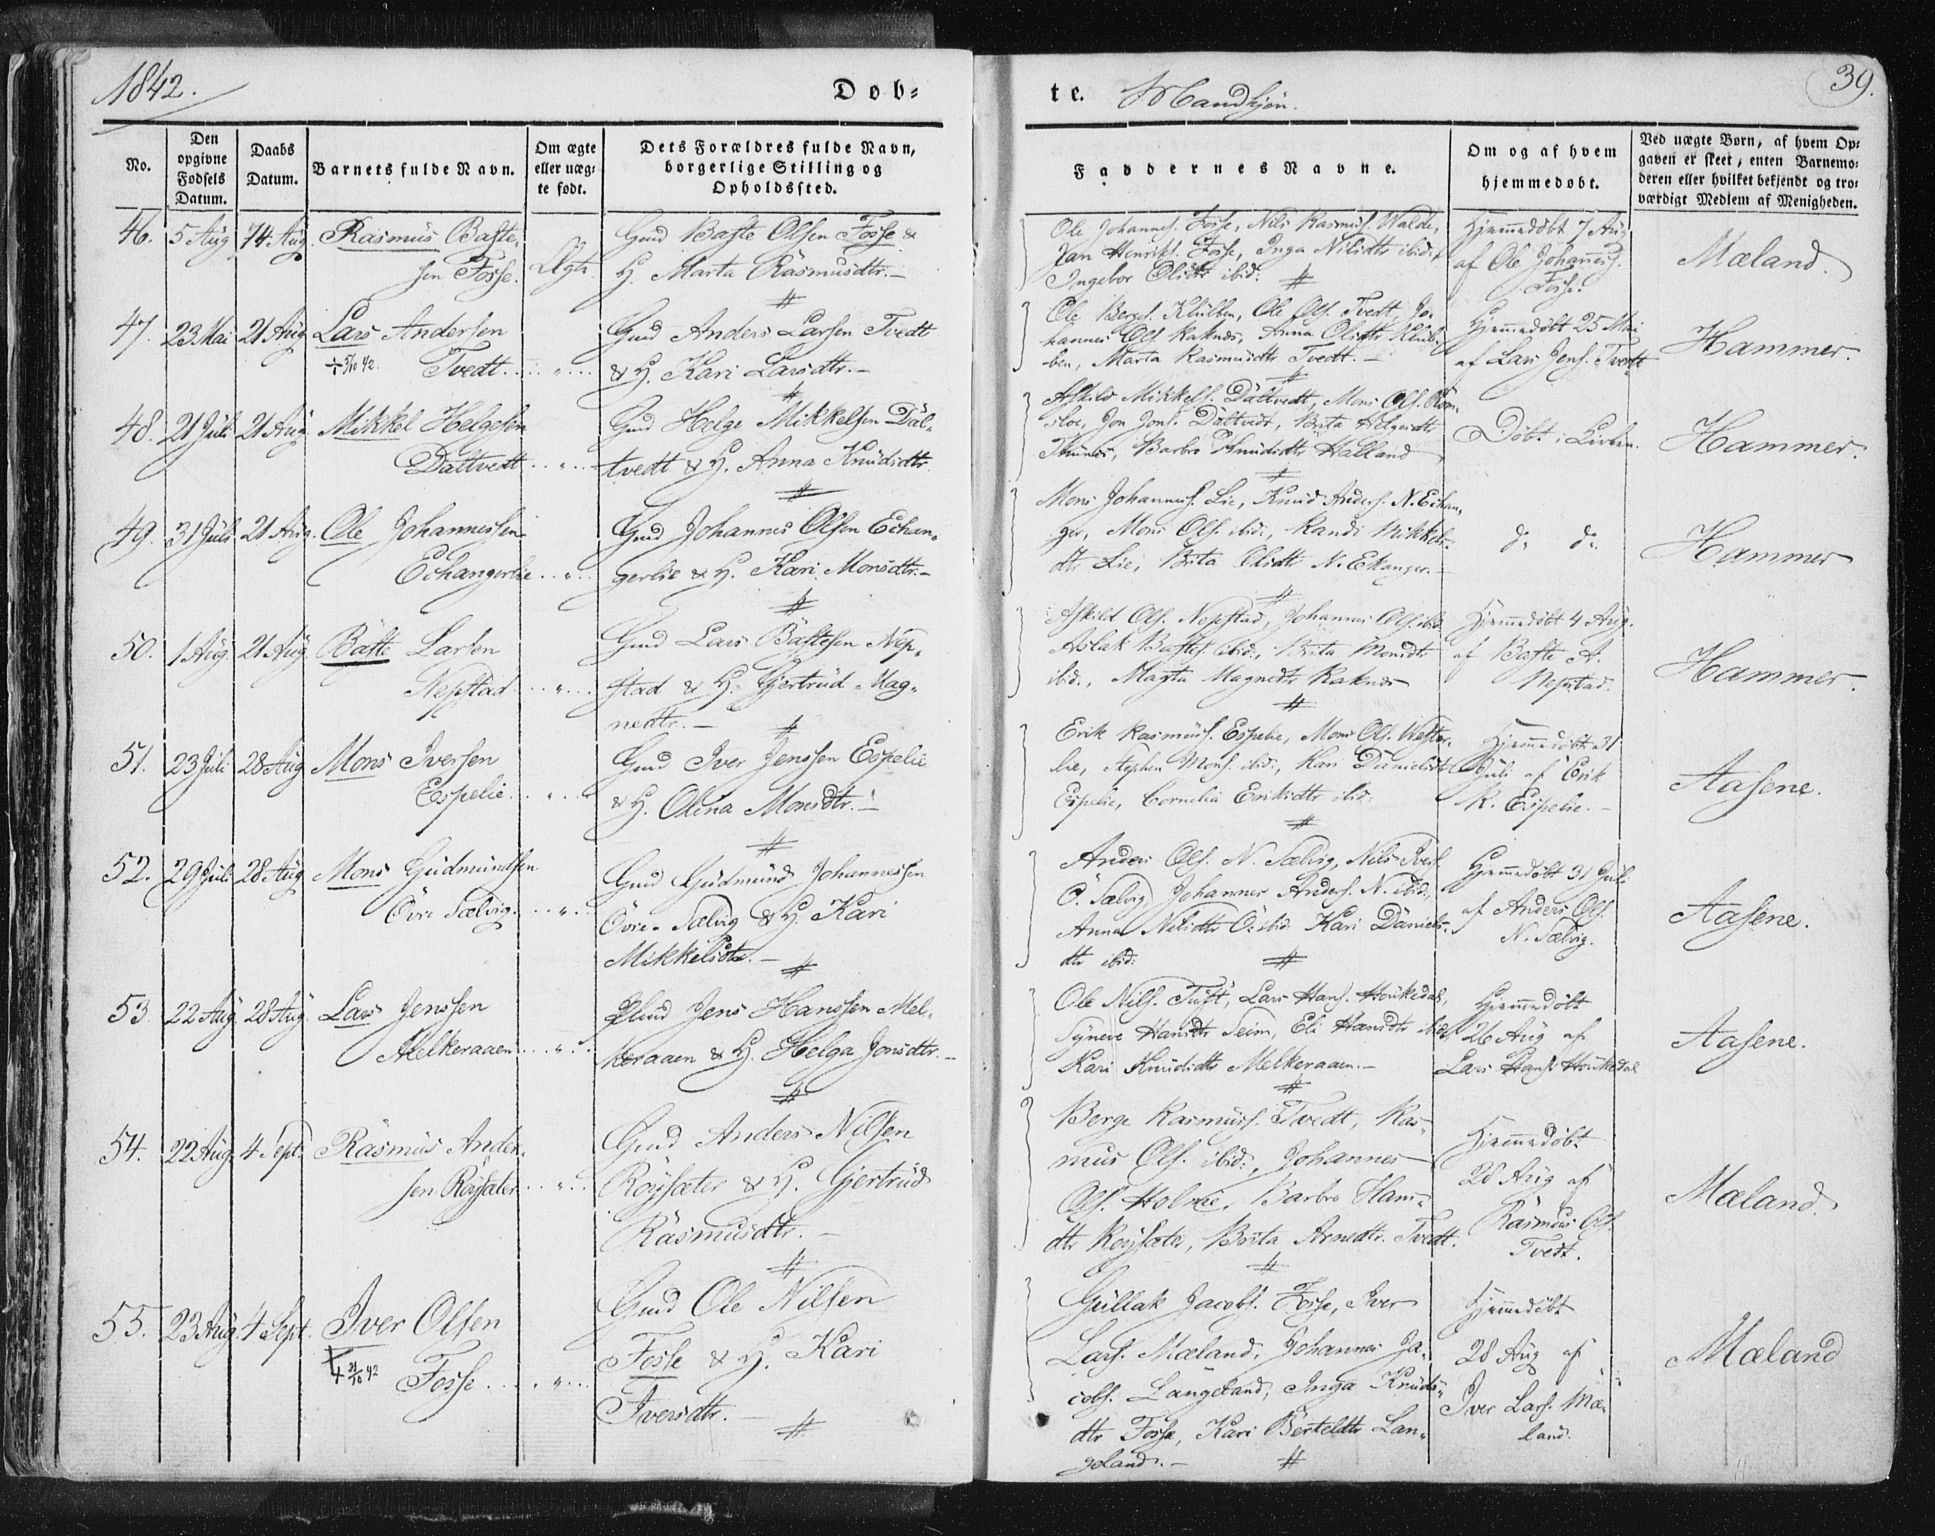 1842.
Dob-
te. Mandkjøn.
39.
No.
Den opgivne Fødsels Datum.
Daabs Datum.
Barnets fulde Navn.
Om ægte eller uæg-
te født.
Dets Forældres fulde Navn,
borgerlige Stilling og
Opholdssted.
Faddernes Navne.
Om og af hvem
hjemmedøbt.
Ved uægte Børn, af hvem Op-
gaven er skeet, enten Barnemo-
deren eller hvilket bekjendt og tro-
værdigt Medlem af Menigheden.
46. 5 Aug 14 Aug. Rasmus Baste-
sen Fosse. Ægte.
Gmd Baste Olsen Fosse &
H. Marta Rasmusdtr.-
Ole Johannes. Fosse, Nils Rasmus. Walde,
Jan Henriks. Fosse, Inga Nilsdtr ibid.,
Ingebor Olsdtr ibid.
Hjemmedøbt 7 Aug
af Ole Johannes.
Fosse.
Mæland.
47. 23 Mai 21 Aug Lars Andersen
Tvedt.. „
Gmd Anders Larsen Tvedt
& H. Kari Larsdtr.-
Ole Berges. Klülben, Ole Ols. Tvedt, Jo-
hannes Ols. Raknes, Anna Olsdtr Klül-
ben, Marta Rasmusdtr Tvedt.-
Hjemmedøbt 25 Mai
af Lars Jens. Tvedt
Hammer.
48. 21 Juli 21 Aug. Mikkel Helgesen
Daltvedt.. „
Gmd Helge Mikkelsen Dal-
tvedt & H. Anna Knudsdtr
Askild Mikkels. Daltvedt, Mons Ols. Rom-
sloe, Jon Jons. Daltvedt, Brita Helgesdtr
Barbro Knudsdtr Halland
Døbt i Kirken.
Hammer.
49. 31 Juli 21 Aug. Ole Johannessen
Echangerlie.. „
Gmd Johannes Olsen Echan-
gerlie & H. Kari Monsdtr.-
Mons Johannes. Lie, Knud Anders. N. Echan-
ger, Mons Ols. ibid., Randi Mikkels-
dtr Lie, Brita Olsdtr N. Ekanger.-
do do
Hammer
50. 1 Aug. 21 Aug. Baste Larsen
Nepstad.. „
Gmd Lars Bastesen Nep-
stad & H. Gjertrud Mag-
nedtr.-
Askild Ols. Nepstad, Johannes Ols. ibid.
Aslak Bastes. ibid., Brita Monsdtr
ibid., Marta Magnedtr Raknes
Hjemmedøbt 4 Aug.
af Baste A.
Nepstad.
Hammer.
51. 23 Juli 28 Aug Mons Iversen
Espelie.. „
Gmd Iver Jenssen Espelie
& H. Olina Monsdtr.-
Erik Rasmus. Espelie, Mons Ols. Wester-
lie, Stephen Mons. ibid., Kari Danielsdtr
Espelie, Cornelia Eriksdtr ibid.
Hjemmedøbt 31
Juli af Erik
R. Espelie.-
Aasene.
52. 29 Juli 28 Aug Mons Gudmundsen
Övre Sælvig.. „
Gmd Gudmund Johannessen
Övre-Sælvig & H. Kari
Mikkelsdtr.-
Anders Ols. N. Sælvig, Nils Ivers.
Ö. Sælvig, Johannes Anders. N. ibid.,
Anna Nilsdtr Ö. ibid. Kari Daniels-
dtr ibid.
Hjemmedøbt 31 Juli
af Anders Ols.
N. Sælvig.
Aasene.
53. 22 Aug. 28 Aug. Lars Jenssen
Melkeraaen.. „
Jens Hanssen Mel-
keraaen & H. Helga Jonsdtr.-
Ole Nils. Tuft, Lars Hans. Houkedal,
Syneve Hansdtr Seim, Eli Hansdtr ibid
Kari Knudsdtr Melkeraaen.-
Hjemmedøbt
26 Aug af
Lars Hans. Houkedal
Aasene.
54. 22 Aug. 4 Sept. Rasmus Ander-
sen Röysæter.. „
Gmd Anders Nilsen
Röysæter & H. Gjertrud
Rasmusdtr.-
Berge Rasmus. Tvedt, Ras-
mus Ols. ibid., Johannes
Ols. Holme, Barbro Hans-
dtr Röysæter, Brita Arnedtr. Tvedt.
Hjemmedøbt
28 Aug af
Rasmus Ols.
Tvedt.
Mæland.
55. 23 Aug. 4 Sept. Iver Olsen
Fosse.. „
Gmd Ole Nilsen
Fosse & H. Kari
Iversdtr.-
Gullak Jacobs. Fosse, Iver
Lars. Mæland, Johannes Ja-
cobs. Langeland, Inga Knuds-
dtr Fosse, Kari Berteldtr Lan-
geland.-
Hjemmedøbt
28 Aug af
Iver Lars. Mæ-
land.
Mæland